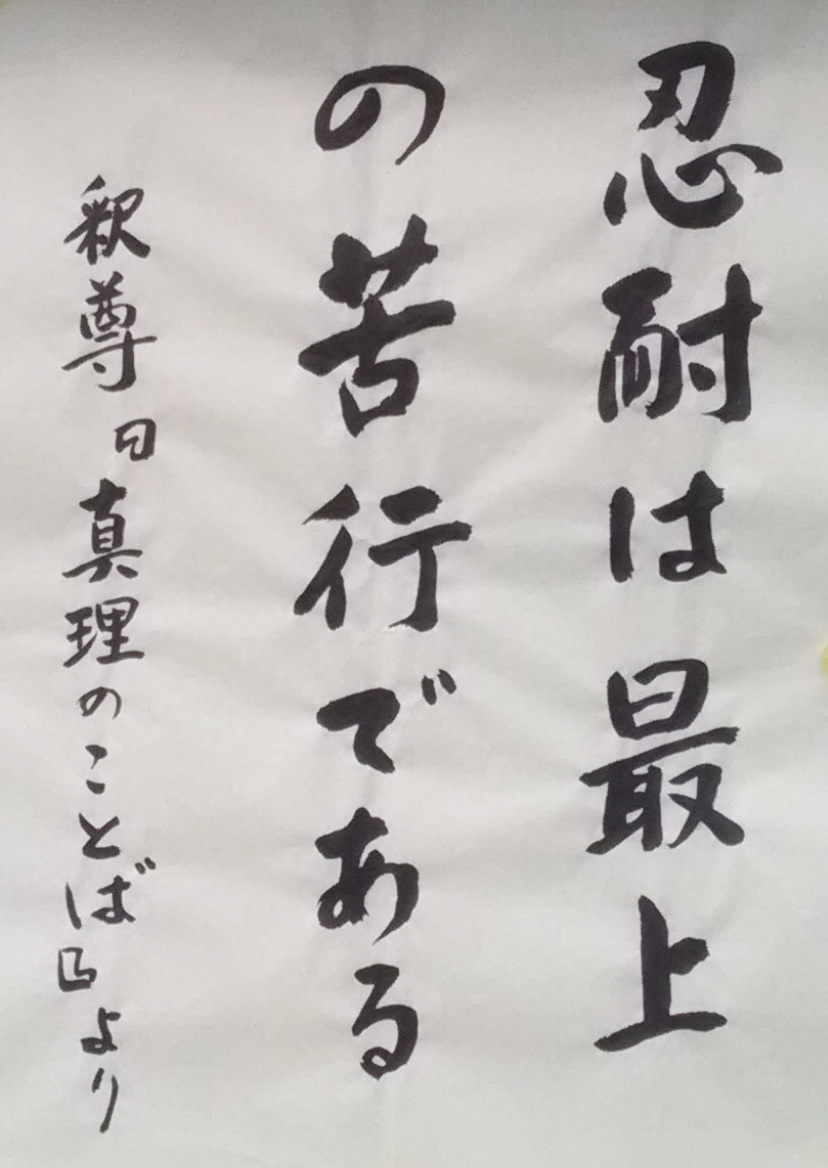 忍耐は最上
の苦行である
釈尊『真理のことば』より